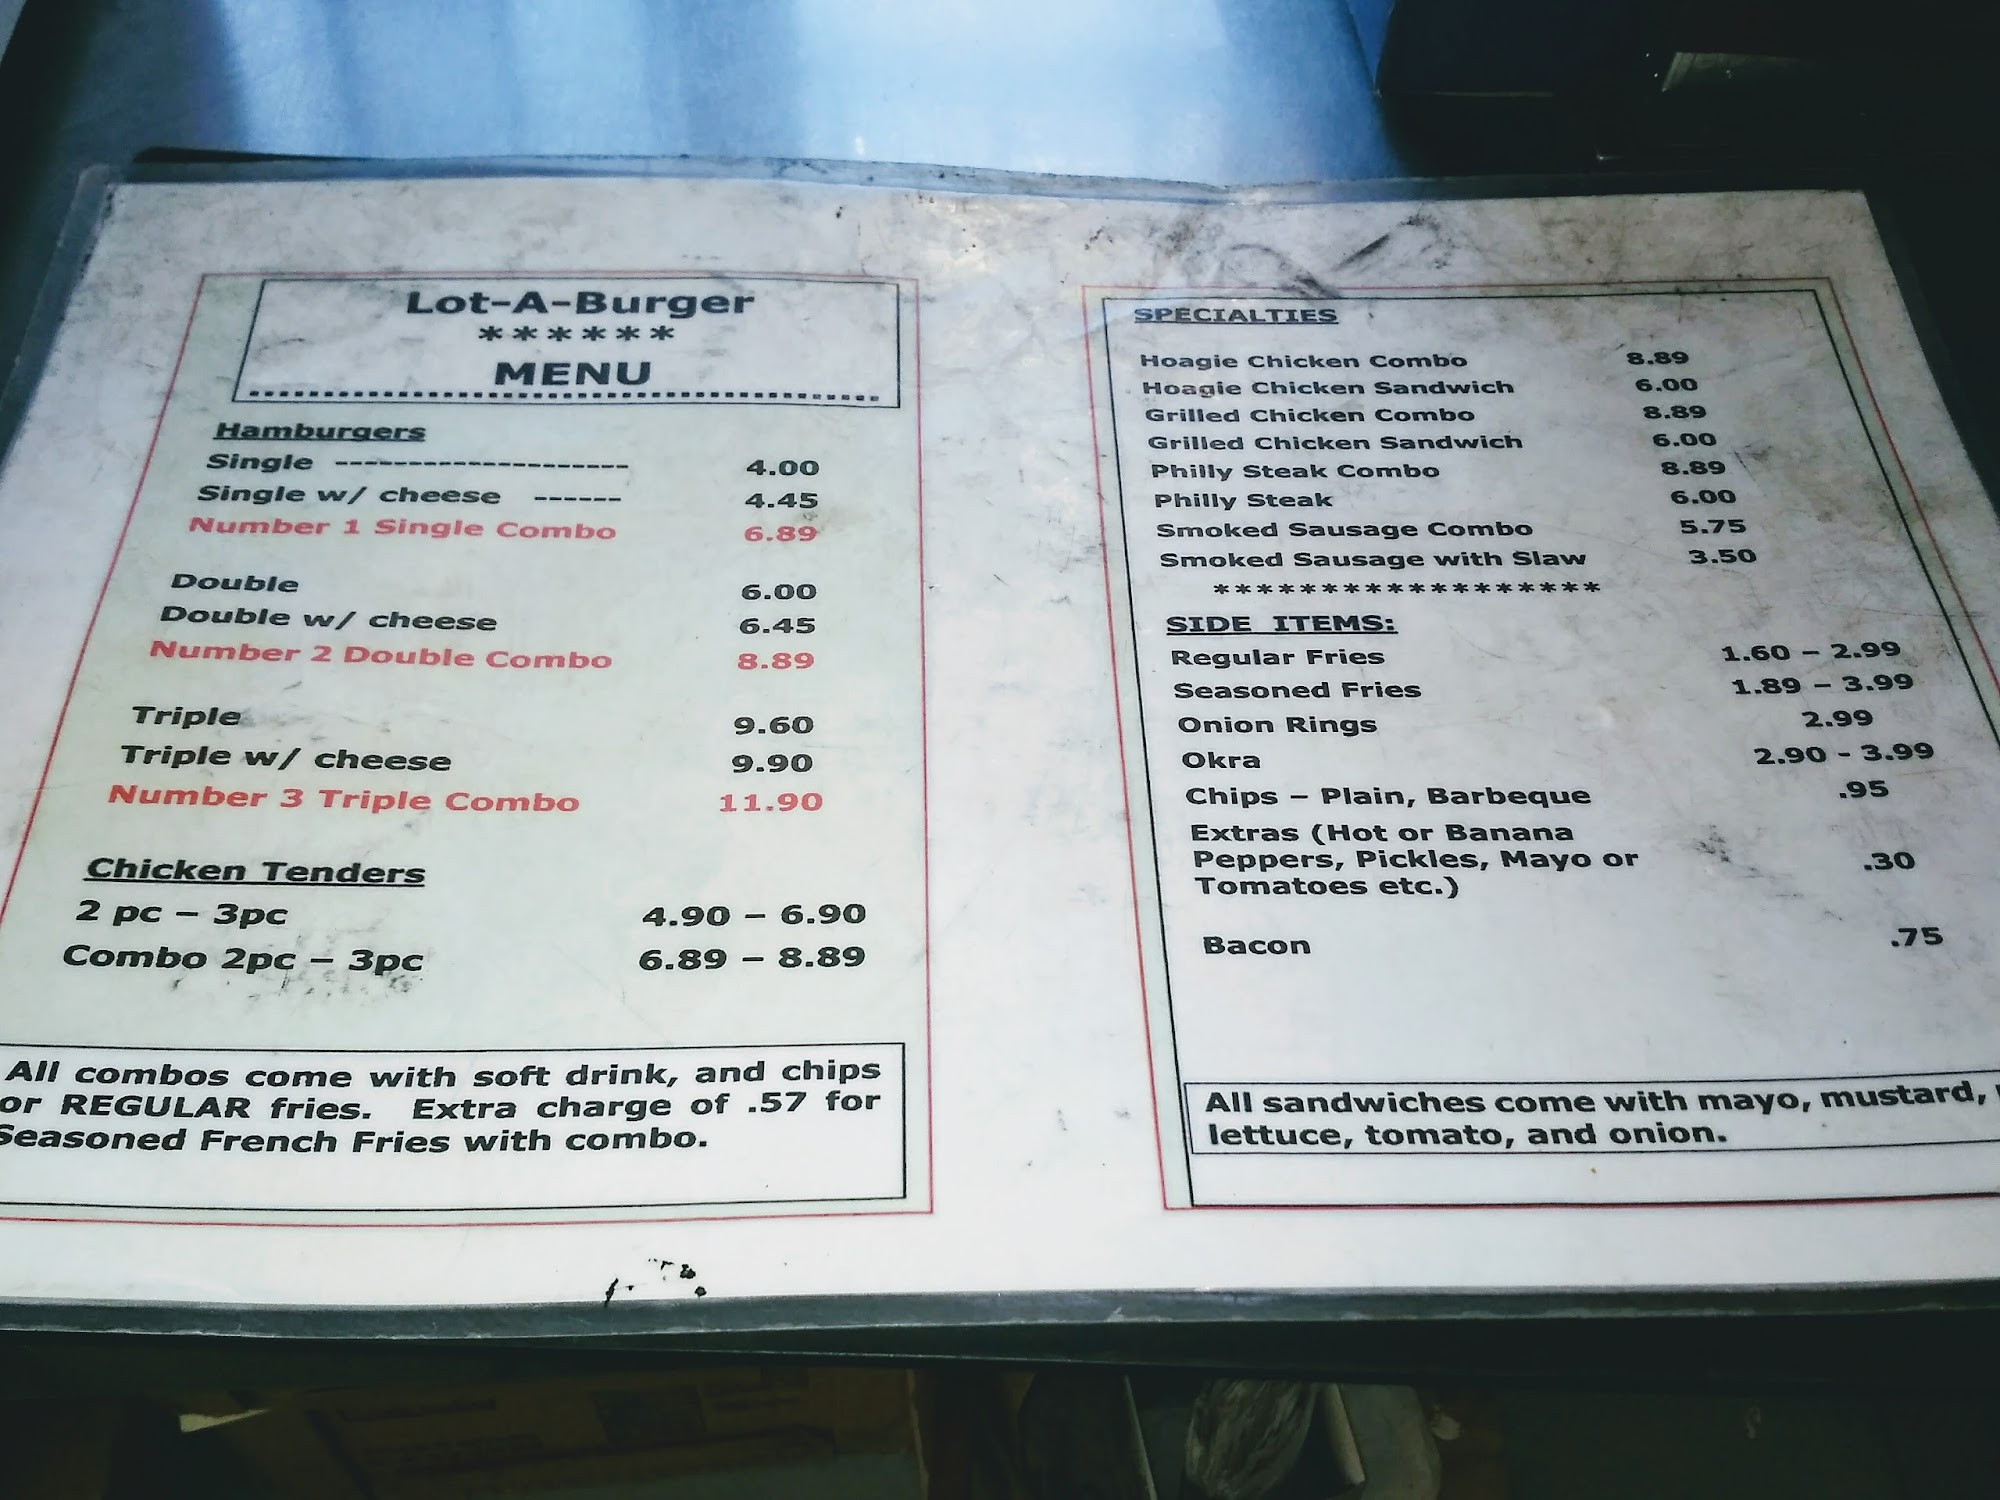 Lot-A-Burger
******
MENU
Hamburgers
Single --------------------- 4.00
Single w/ cheese ------ 4.45
Number 1 Single Combo 6.89
Double 6.00
Double w/ cheese 6.45
Number 2 Double Combo 8.89
Triple 9.60
Triple w/ cheese 9.90
Number 3 Triple Combo 11.90
Chicken Tenders
2 pc – 3pc 4.90 – 6.90
Combo 2pc – 3pc 6.89 – 8.89
All combos come with soft drink, and chips
or REGULAR fries. Extra charge of .57 for
Seasoned French Fries with combo.
SPECIALTIES
Hoagie Chicken Combo 8.89
Hoagie Chicken Sandwich 6.00
Grilled Chicken Combo 8.89
Grilled Chicken Sandwich 6.00
Philly Steak Combo 8.89
Philly Steak 6.00
Smoked Sausage Combo 5.75
Smoked Sausage with Slaw 3.50
******************
SIDE ITEMS:
Regular Fries 1.60 – 2.99
Seasoned Fries 1.89 – 3.99
Onion Rings 2.99
Okra 2.90 - 3.99
Chips – Plain, Barbeque .95
Extras (Hot or Banana
Peppers, Pickles, Mayo or .30
Tomatoes etc.)
Bacon .75
All sandwiches come with mayo, mustard,
lettuce, tomato, and onion.